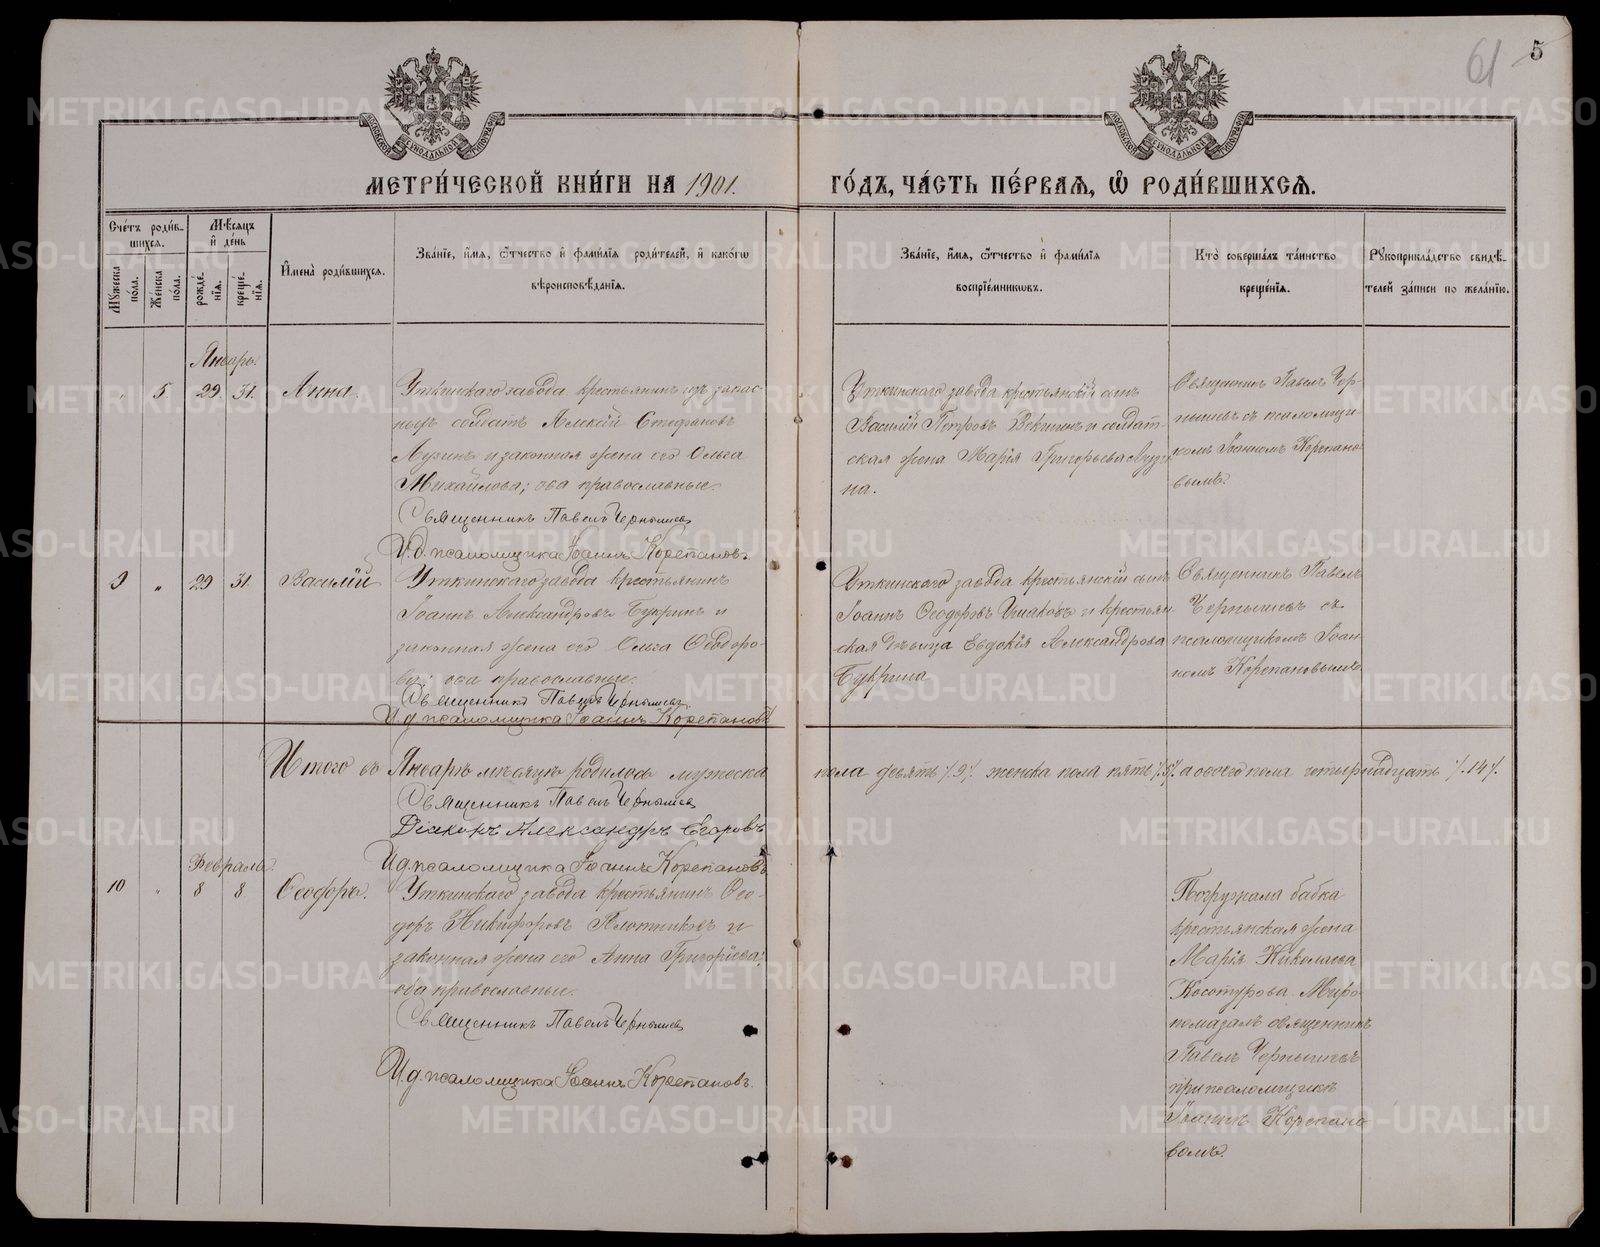 61 5
МЕТРИ́ЧЕСКОЙ КНИ́ГИ НА 1901.
ГО́ДЪ, ЧА́СТЬ ПЕ́РВАЯ, Ѽ РОДИ́ВШИХСЯ.
Сче́тъ роди́в-
шихся.
Мѣ́сяцъ
и҆ де́нь
Мꙋжеска по́ла.
Же́нска по́ла.
рожде́-
нїя.
креще́-
нїя.
И҆мена̀ роди́вшихся.
Зва́нїе, и҆́мя, ѻ҆́тчество и҆ фами́лїя роди́телей, и҆ како́гѡ
вѣроисповѣ́данїя.
Зва́нїе, и҆́мя, ѻ҆́тчество и҆ фами́лїя
воспрїе́мникѡвъ.
Кто̀ соверша́лъ та́инство
креще́нїя.
Рꙋкоприкла́дство свидѣ́-
телей за́писи по жела́нїю.
Январь.
„ 5 29 31. Анна.
Уткинскаго завода крестьянинъ изъ запас-
ныхъ солдатъ Алексѣй Стефановъ
Лузинъ и законная жена его Ольга
Михайлова; оба православные.
Священникъ Павелъ Чернышевъ
И.д. псаломщика Іоаннъ Корепановъ
Уткинского завода крестьянскій сынъ
Василій Петровъ Векшинъ и солдат-
ская жена Марія Григорьева Лузи-
на.
Священникъ Павелъ Чер-
нышевъ съ псаломщи-
комъ Іоанномъ Корепано-
вымъ.
9 „ 29 31. Василій
Уткинскаго завода крестьянинъ
Іоаннъ Александровъ Букринъ и
законная жена его Ольга Ѳеодоро-
ва; оба православные.
Священникъ Павелъ Чернышевъ
И.д. псаломщика Іоаннъ Корепановъ
Уткинского завода крестьянскій сынъ
Іоаннъ Ѳеодоровъ Ушаковъ и крестьян-
ская дѣвица Евдокія Александрова
Букрина
Священникъ Павелъ
Чернышевъ съ
псаломщикомъ Іоан-
номъ Корепановымъ
Итого въ Январѣ мѣсяцѣ родилось мужеска пола девять /.9/. женска пола пять /.5/. а обоего пола четырнадцать /.14/.
Священникъ Павелъ Чернышевъ
Діаконъ Александръ Егоровъ
И.д. псаломщика Іоаннъ Корепановъ
Февраль.
10 „ 8 8 Ѳеодоръ.
Уткинскаго завода крестьянинъ Ѳео-
доръ Никифоровъ Плотниковъ и
законная жена его Анна Григоріева;
оба православные.
Священникъ Павелъ Чернышевъ
И.д. псаломщика Іоаннъ Корепановъ.
Погружала бабка
крестьянская жена
Марія Николаева
Косотурова. Миро-
помазалъ священникъ
Павелъ Чернышевъ
при псаломщикѣ
Іоаннѣ Корепано-
вомъ.
METRIKI.GASO-URAL.RU